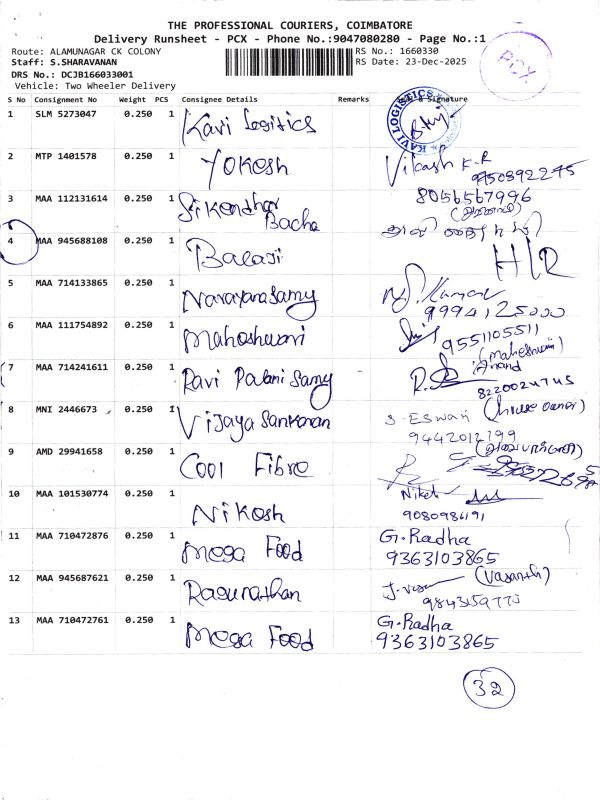 THE PROFESSIONAL COURIERS, COIMBATORE
Delivery Runsheet - PCX - Phone No.:9047080280 - Page No.:1
Route: ALAMUNAGAR CK COLONY
RS No.: 1660330
Staff: S.SHARAVANAN
RS Date: 23-Dec-2025
DRS No.: DCJB166033001
Vehicle: Two Wheeler Delivery
PCX
S No Consignment No Weight PCS Consignee Details Remarks & Signature
KAVI LOGISTICS
1 SLM 5273047 0.250 1 Kavi Logitics
2 MTP 1401578 0.250 1 Yokesh Vikash K.R
9750892275
3 MAA 112131614 0.250 1 Srikandhar Bacha 8056567996
4 MAA 945688108 0.250 1 Balaji H/R
5 MAA 714133865 0.250 1 Narayanasamy
9994125000
6 MAA 111754892 0.250 1 Maheshwari 9551105511
(maheshwari)
7 MAA 714241611 0.250 1 Ravi Palani Samy Anand
8220024745
8 MNI 2446673 0.250 1 Vijaya Sankaran S. ESwari (house owner)
9442012799
9 AMD 29941658 0.250 1 Cool Fibre
10 MAA 101530774 0.250 1 Nikesh Niket
9080986191
11 MAA 710472876 0.250 1 Mega Food G. Radha
9363103865
12 MAA 945687621 0.250 1 Ragunathan (Vasanth)
9843159775
13 MAA 710472761 0.250 1 Mega Food G. Radha
9363103865
32